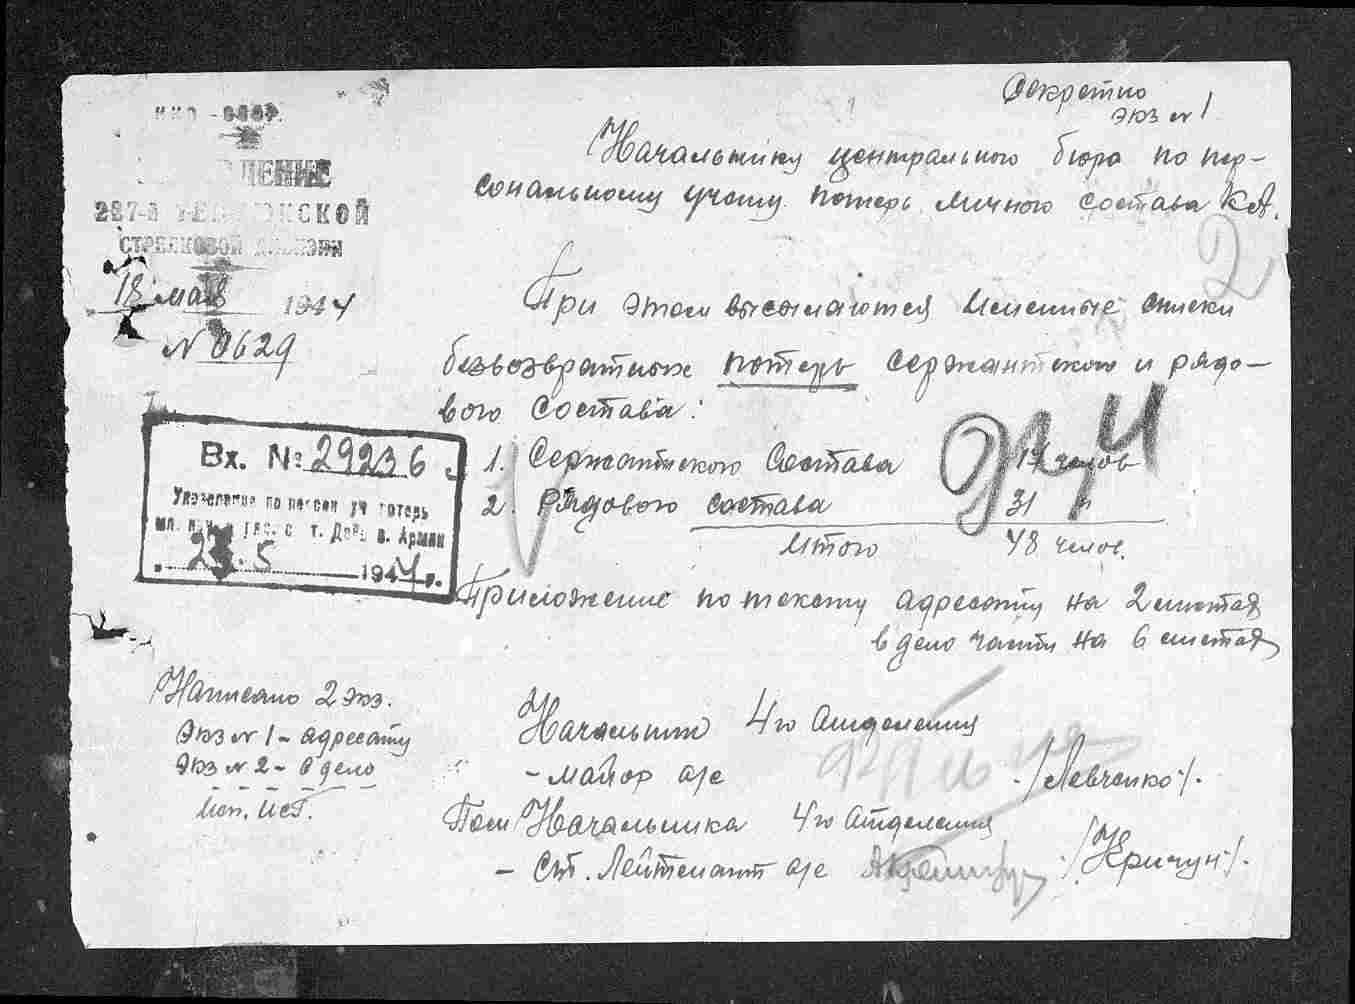 Секретно
Экз № 1
НКО - СССР.
287-й
СТРЕЛКОВОЙ ДИВИЗИИ
18 мая 1944
№ 0629
Начальнику центрального бюро по пер-
сональному учету потерь личного состава КА.
2
При этом высылаются именные списки
безвозвратных потерь сержантского и рядо-
вого состава:
1. Сержантского состава 17 челов
2. Рядового состава 31 "
Итого 48 челов.
Вх. № 29236
Управление по персон уч потерь
мл. нач. и ряд. с. т. Дейст. Армии
23.5 1944 г.
Приложение по тексту адресату на 2 листах
в дело части на 6 листах
Написано 2 экз.
Экз № 1 - адресату
Экз № 2 - в дело
Исп.
Начальник 4го отделения
- майор а/с /Левченко/.
Пом Начальника 4го отделения
- Ст. Лейтенант а/с /Кричун/.